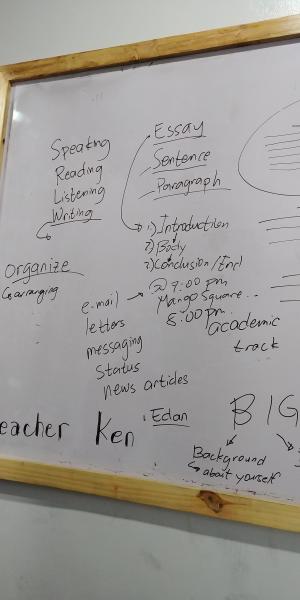 Speaking
Reading
Listening
Writing
organize
arranging
Essay
Sentence
Paragraph
1) Introduction
2) Body
3) Conclusion/End
e-mail
letters
messaging
status
news articles
@ 7:00 pm
Mango Square...
8:00 pm
academic
track
eacher Ken
Edan
BIG
Background
about yourself